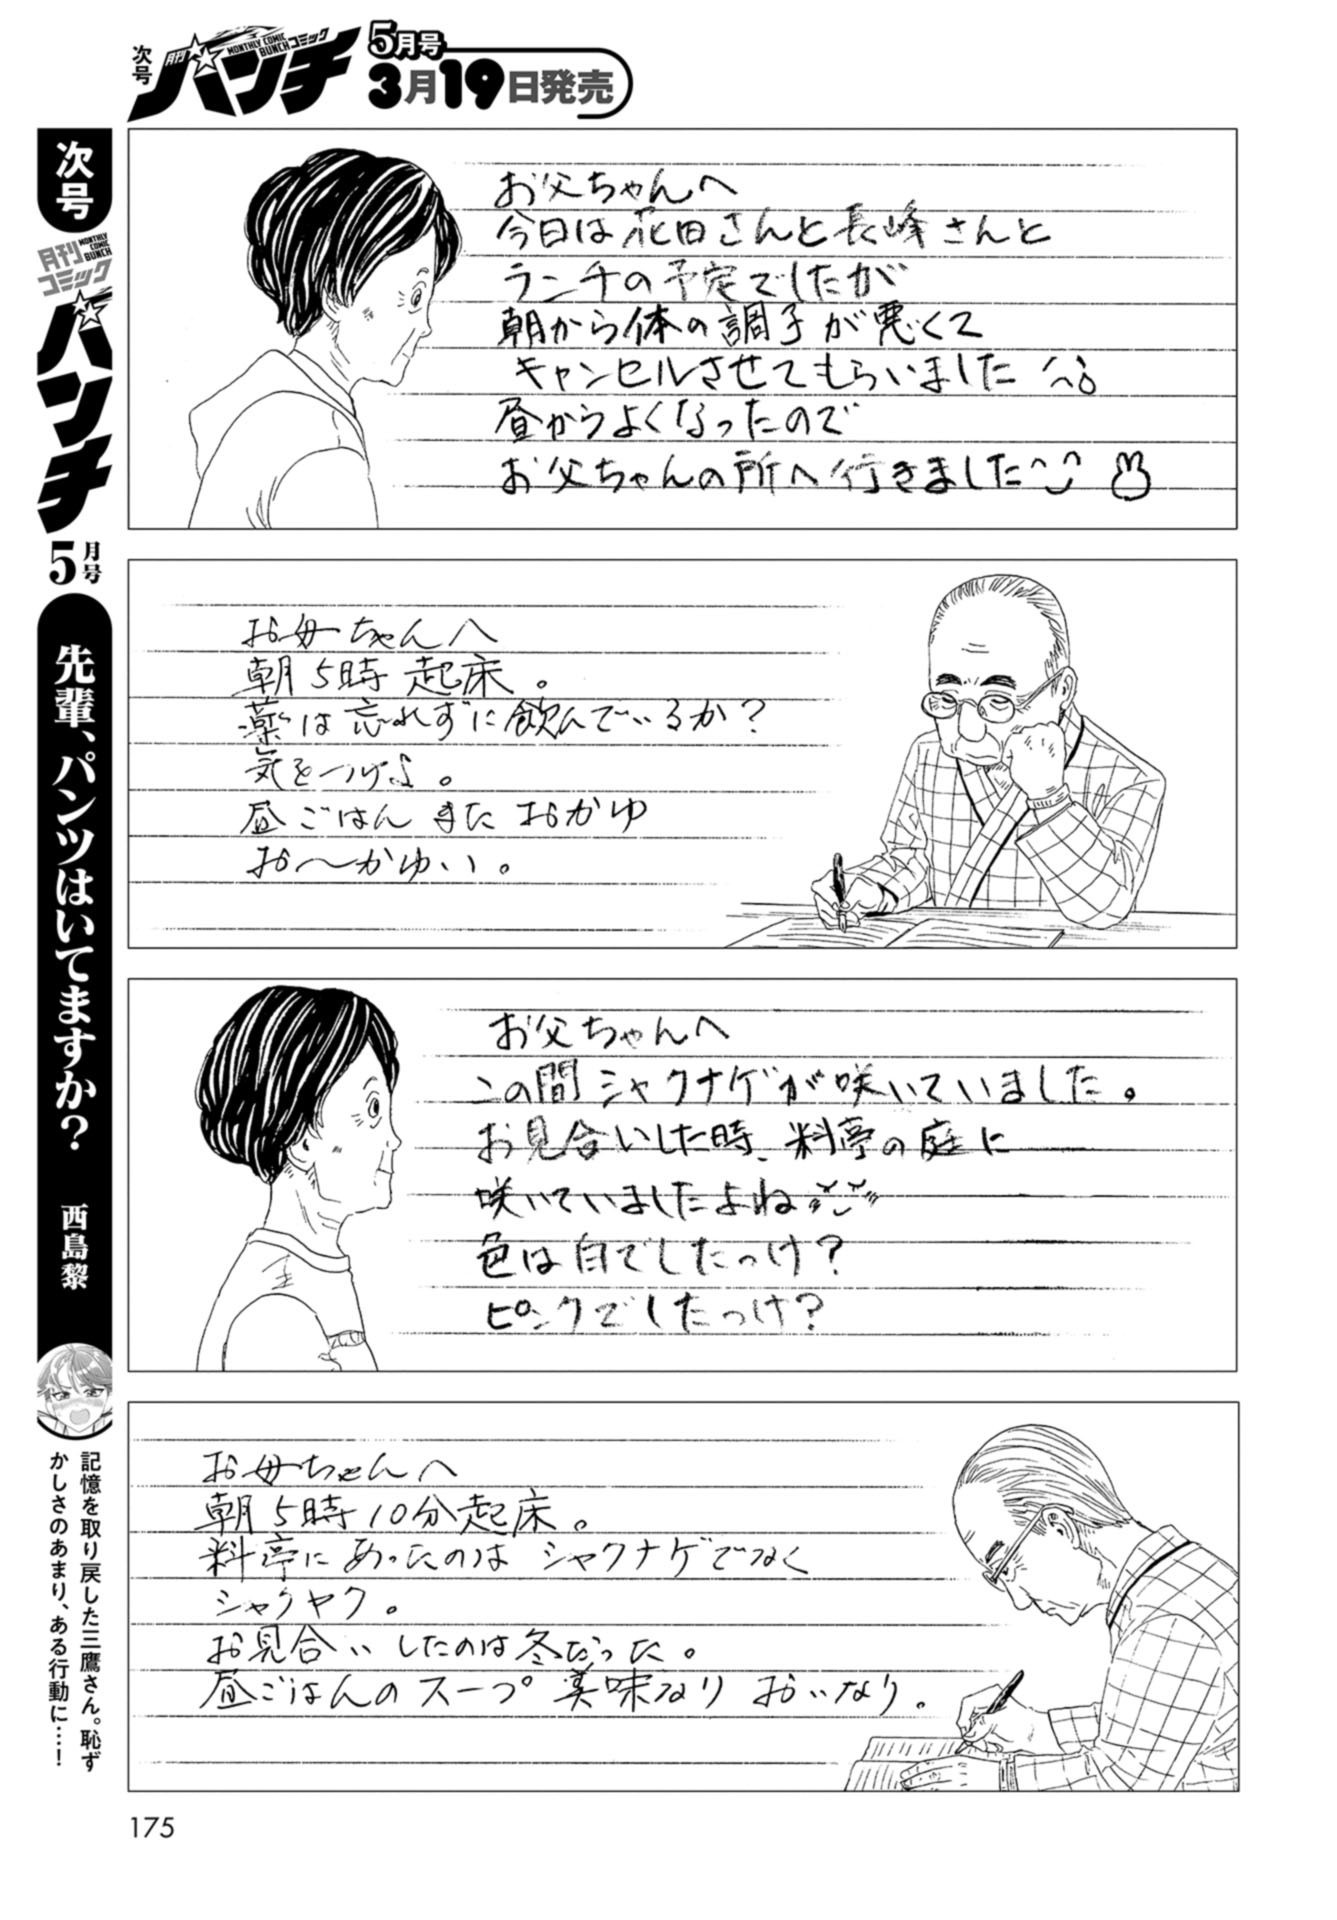 次号
月刊
MONTHLY COMIC BUNCH
コミック
バンチ
5月号
3月19日発売
お父ちゃんへ
今日は花田さんと長峰さんと
ランチの予定でしたが
朝から体の調子が悪くて
キャンセルさせてもらいました
昼からよくなったので
お父ちゃんの所へ行きました
お母ちゃんへ
朝5時起床。
薬は忘れずに飲んでいるか?
気をつけよ。
昼ごはん またおかゆ
お〜かゆいい。
お父ちゃんへ
この間シャクナゲが咲いていました。
お見合いした時、料亭の庭に
咲いていましたよね
色は白でしたっけ?
ピンクでしたっけ?
お母ちゃんへ
朝5時10分起床。
料亭にあったのはシャクナゲでなく
シャクヤク。
お見合いしたのは冬だった。
昼ごはんのスープ美味なり おいなり。
次号
月刊
コミック
MONTHLY COMIC BUNCH
バンチ
5月号
先輩、パンツはいてますか?
西島黎
記憶を取り戻した三鷹さん。恥ず
かしさのあまり、ある行動に…!
175